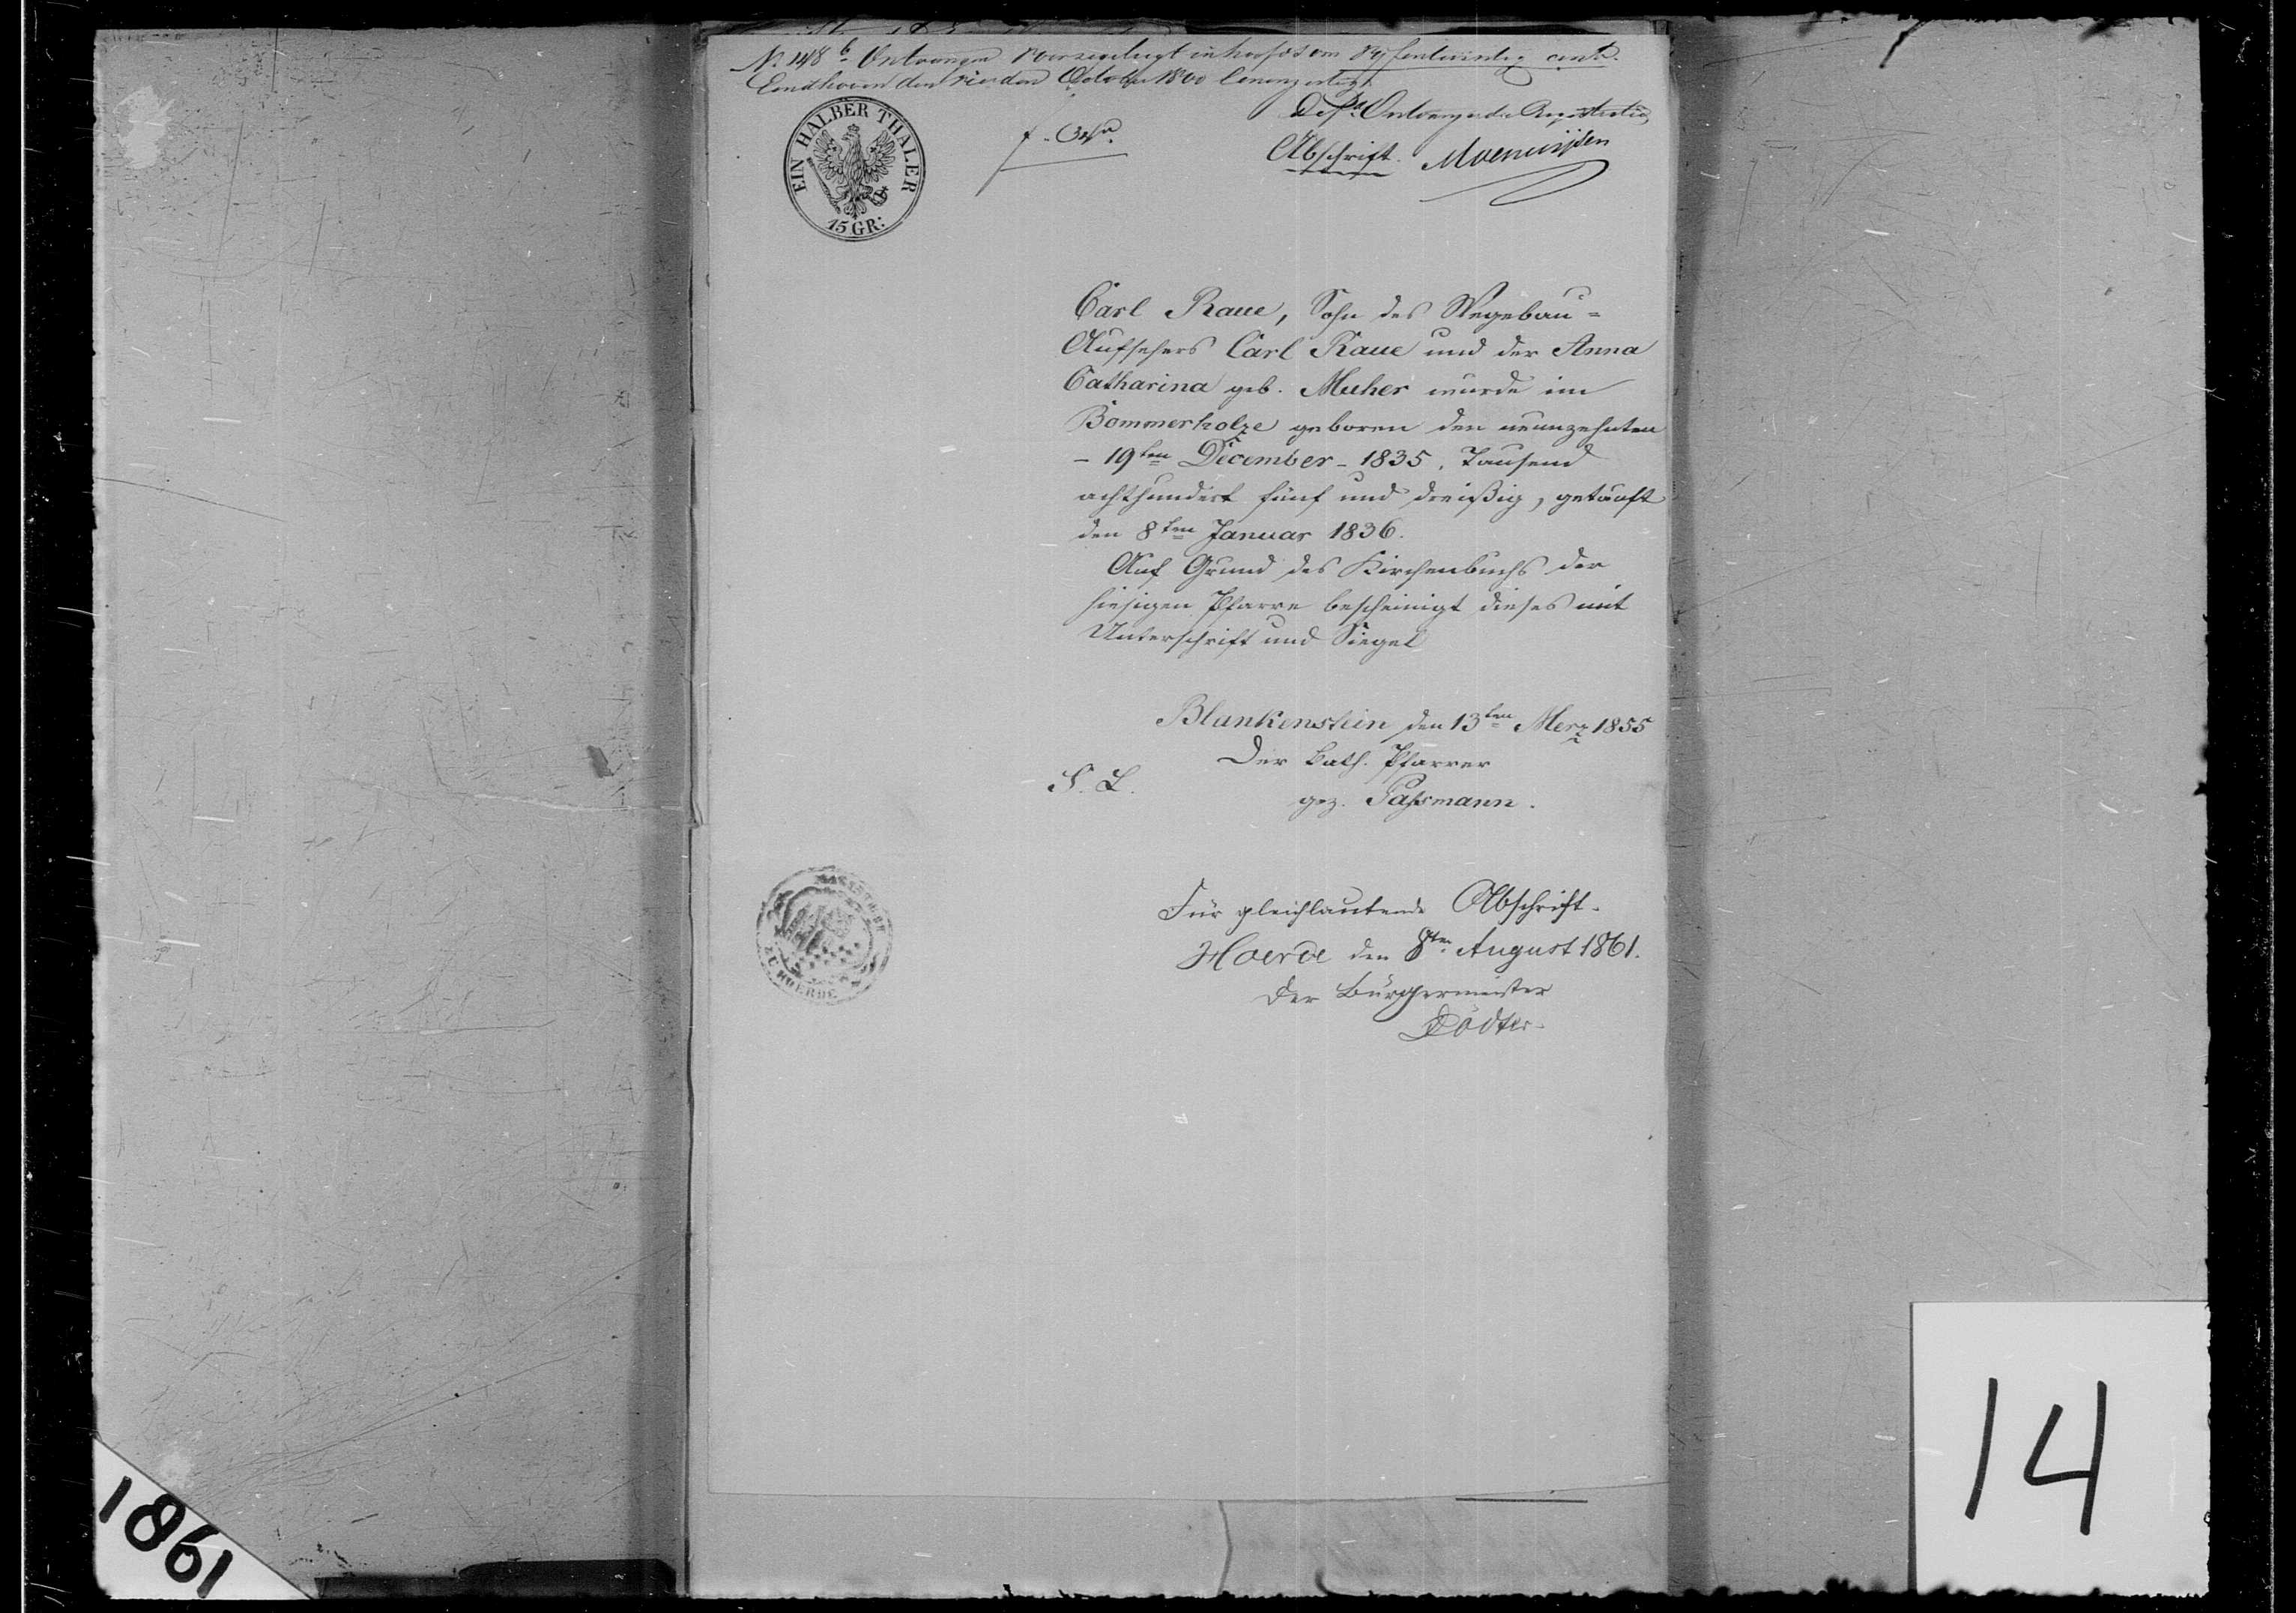 No 148 b Ontvangen voor zegelregt in hoofdsom vijfentwintig cents.
Eindhoven den vierden October 1800 Eenenzestig
De Ontvanger der Registratie,
Abschrift. Moenwijsen
EIN HALBER THALER
15 GR:
Carl Raue, Sohn des Wegebau=
Aufsehers Carl Raue und der Anna
Catharina geb. Muher wurde im
Bommerholze geboren den neunzehnten
- 19ten December - 1835, Tausend
achthundert fünf und dreißig, getauft
den 8ten Januar 1836.
Auf Grund des Kirchenbuchs der
hiesigen Pfarre bescheinigt dieses mit
Unterschrift und Siegel
Blankenstein den 13ten Merz 1855
Der kath. Pfarrer
L. S.
gez. Paßmann.
Für gleichlautende Abschrift.
Hoerde den 8ten August 1861.
Der Bürgermeister
Dödter
ZU HOERDE
1861
14